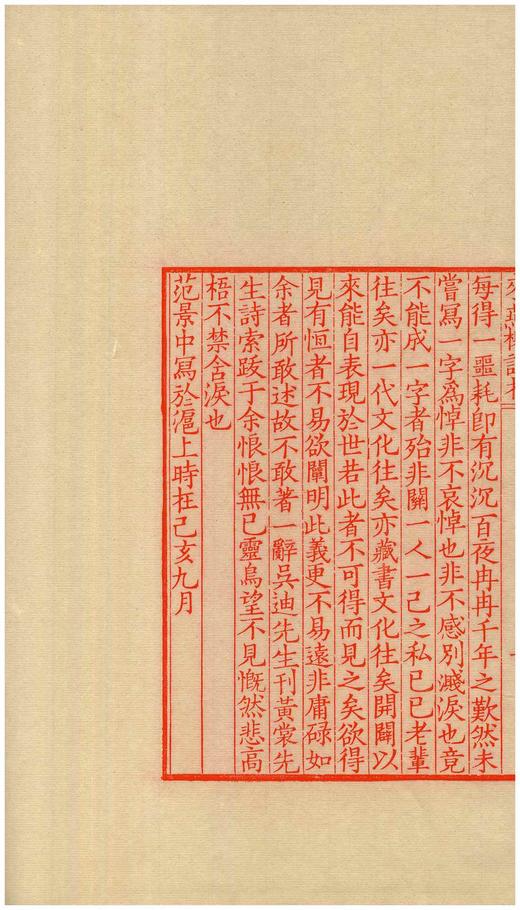 來燕榭詩札
每得一噩耗即有沉沉百夜冉冉千年之歎然未
嘗寫一字爲悼非不哀悼也非不感別濺淚也竟
不能成一字者殆非關一人一己之私已已老輩
往矣亦一代文化往矣亦藏書文化往矣開闢以
來能自表現於世若此者不可得而見之矣欲得
見有恒者不易欲闡明此義更不易遠非庸碌如
余者所敢述故不敢著一辭吳迪先生刊黃裳先
生詩索跋于余悵悵無已靈鳥望不見慨然悲高
梧不禁含淚也
范景中寫於滬上時在己亥九月